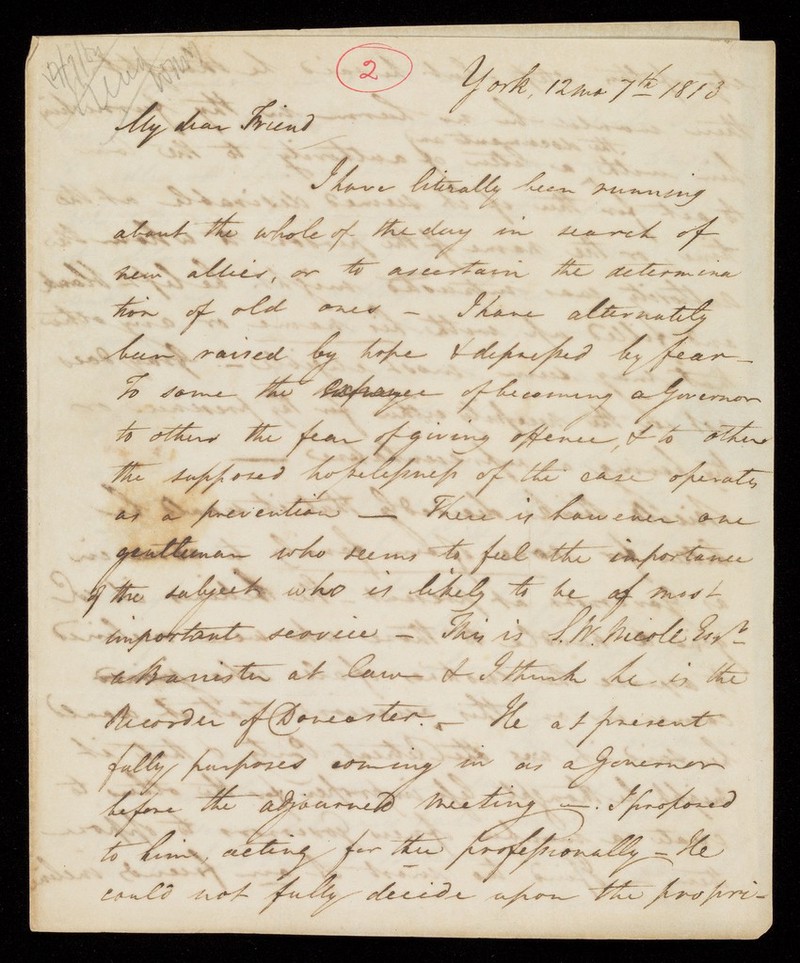 2
York, 12mo 7th 1813
My dear Friend
I have literally been running
about the whole of the day in search of
new allies, or to ascertain the determina
tion of old ones – I have alternately
been raised by hope & depressed by fear –
To some the expence of becoming a Governor
to others the fear of giving offence, & to others
the supposed hopelessness of the case operates
as a prevention — There is however one
gentleman who seems to feel the importance
of the subject who is likely to be of most
important service – This is S. W. Nicole Esqr
a Barrister at Law & I think he is the
Recorder of Doncaster. – He at present
fully purposes coming in as a Governor
before the adjourned meeting –. I proposed
to him, acting for thee professionally – He
could not fully decide upon the propri-